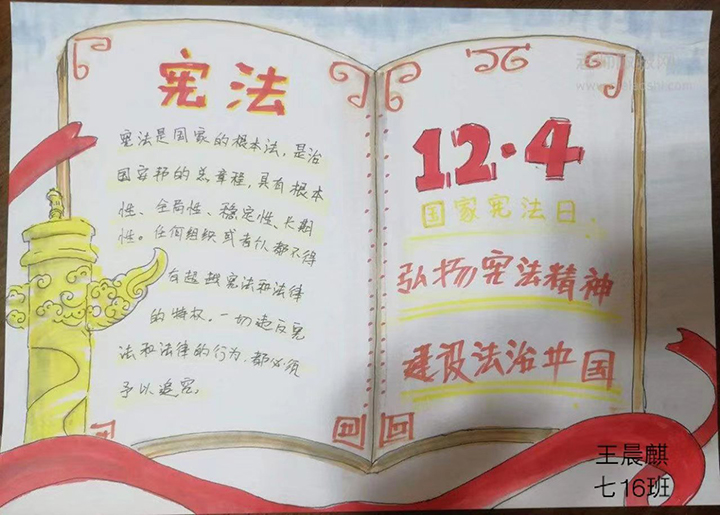 宪法
宪法是国家的根本法，是治
国安邦的总章程，具有根本
性、全局性、稳定性、长期
性。任何组织或者个人都不得
有超越宪法和法律
的特权，一切违反宪
法和法律的行为，都必须
予以追究。
12·4
国家宪法日
弘扬宪法精神
建设法治中国
王晨麒
七16班